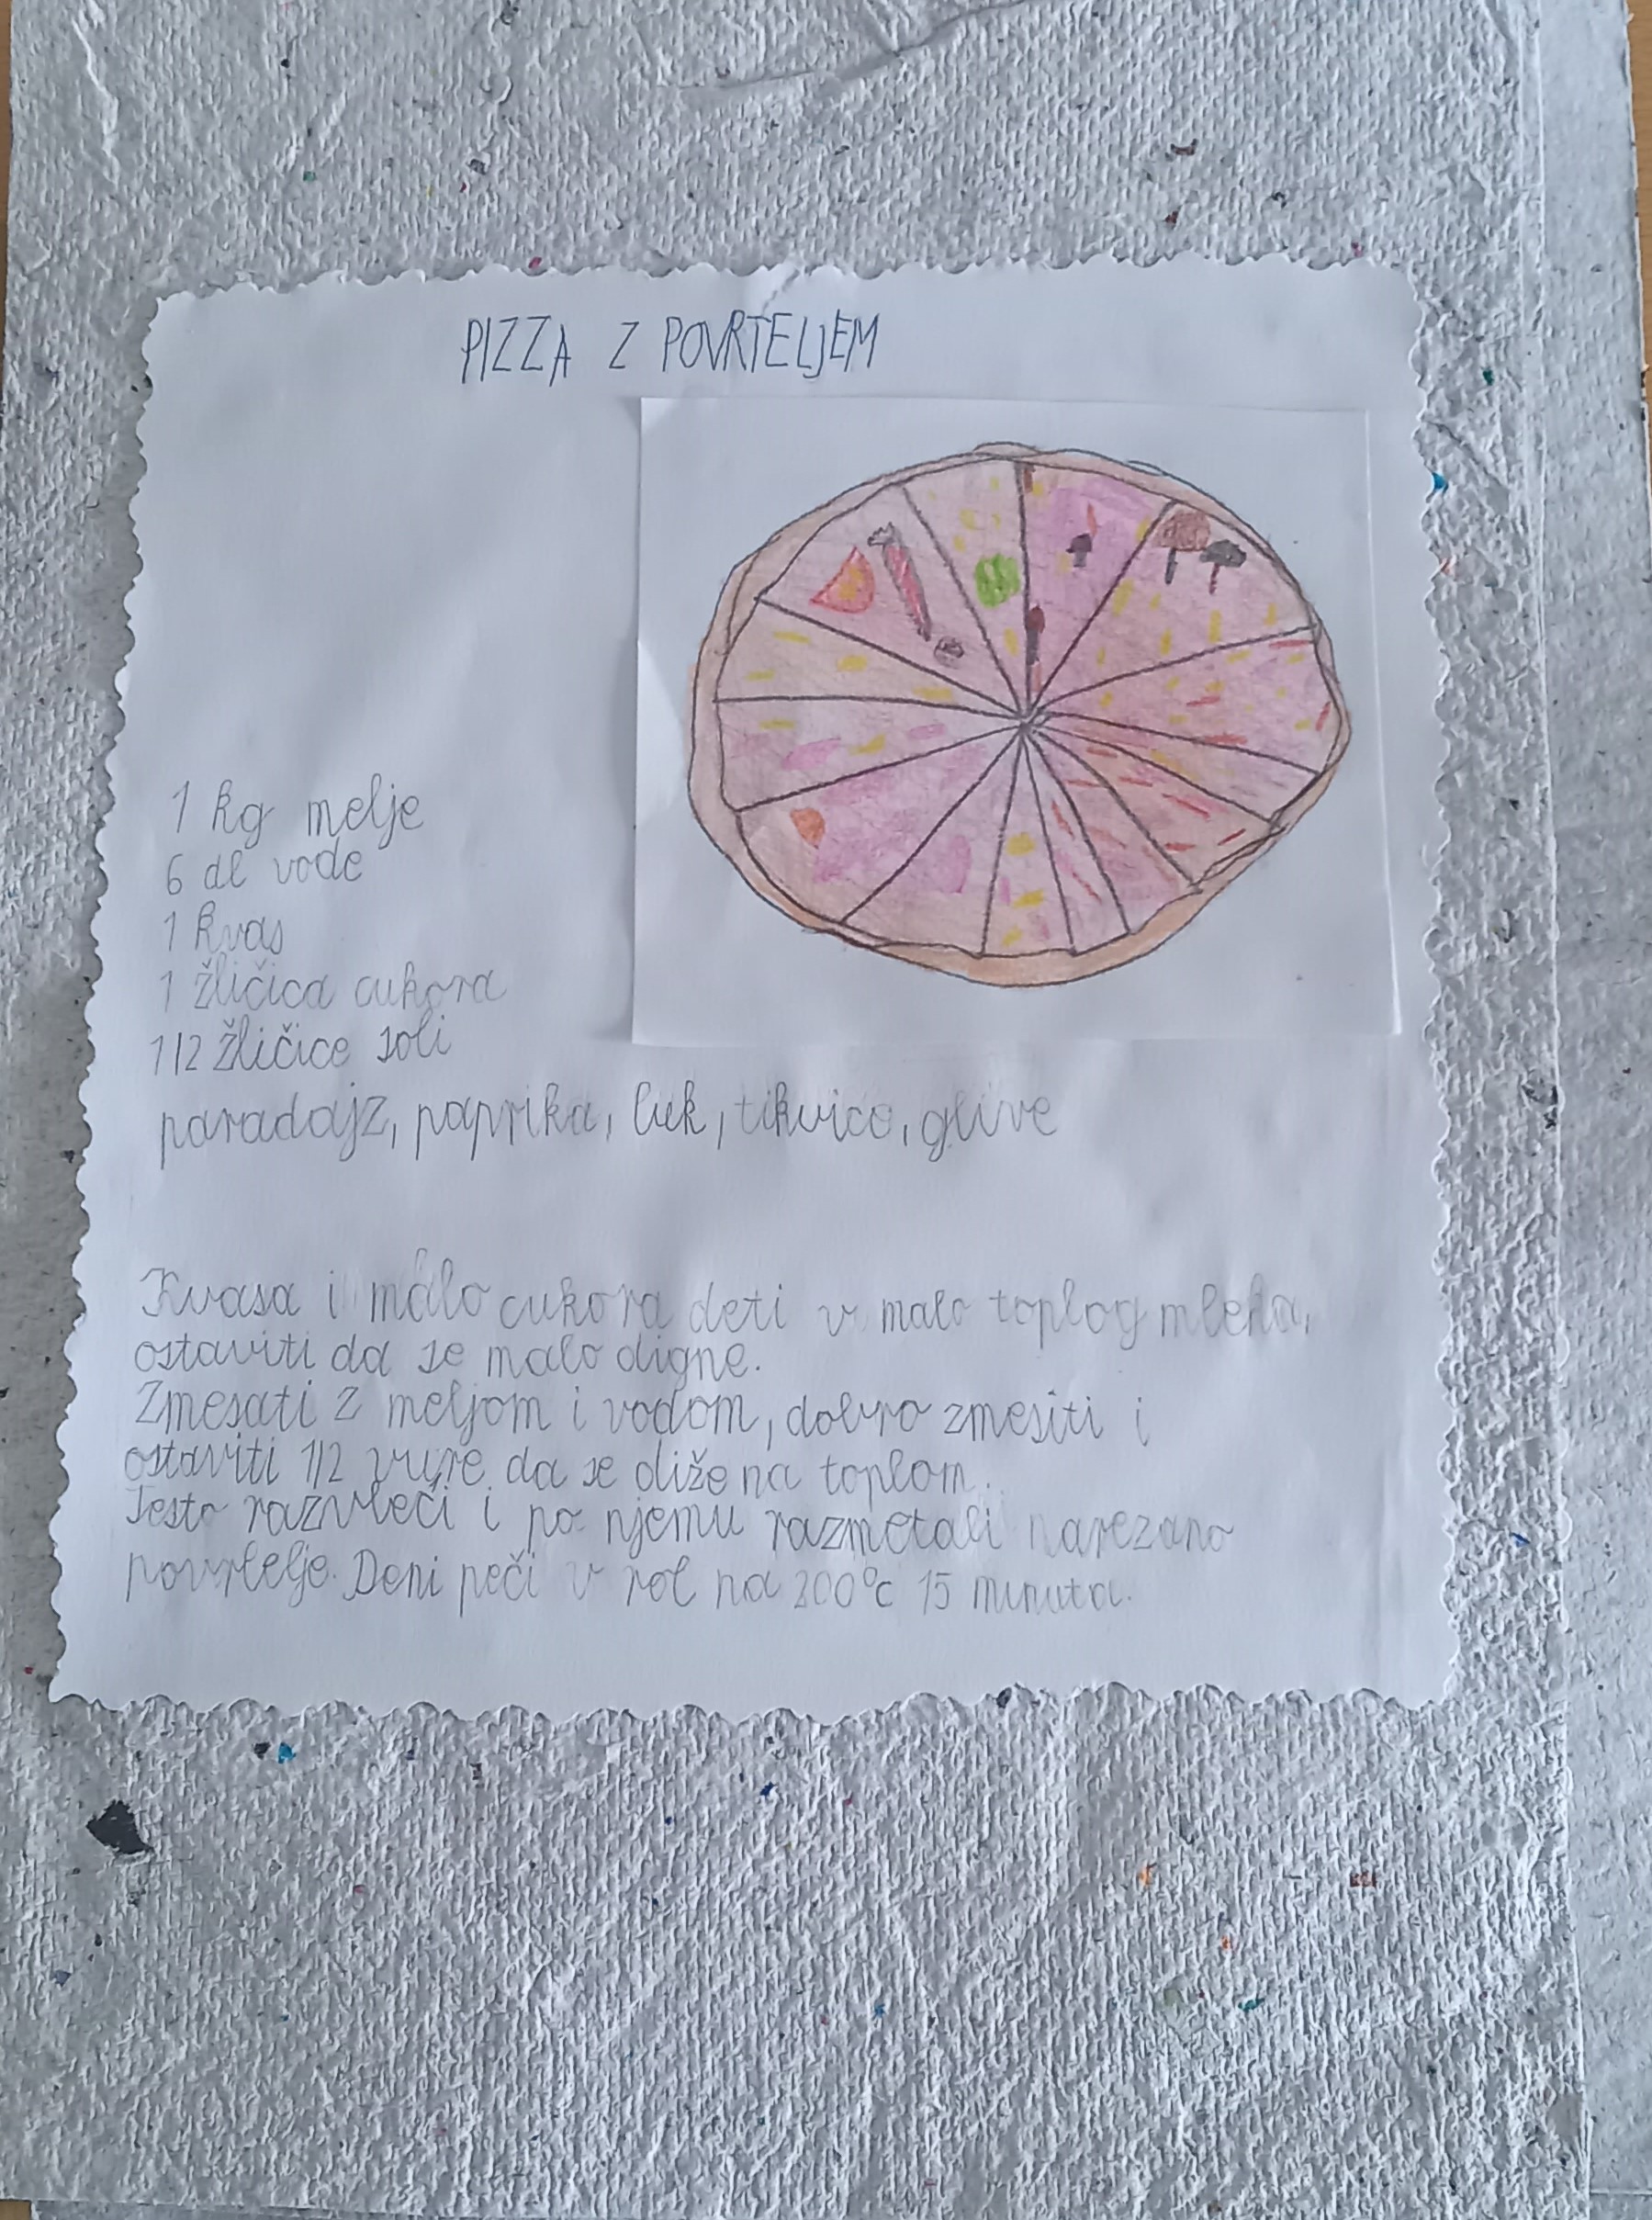 PIZZA Z POVRTELJEM
1 kg melje
6 dl vode
1 kvas
1 žličica cukora
1/2 žličice soli
paradajz, paprika, luk, tikvice, glive
Kvasa i malo cukora deti v malo toplog mleka,
ostaviti da se malo digne.
Zmesati z meljom i vodom, dobro zmesiti i
ostaviti 1/2 vure da se diže na toplom.
Testo razvleči i po njemu razmetali narezano
povrtelje. Deni peči v rol na 200°C 15 minuta.